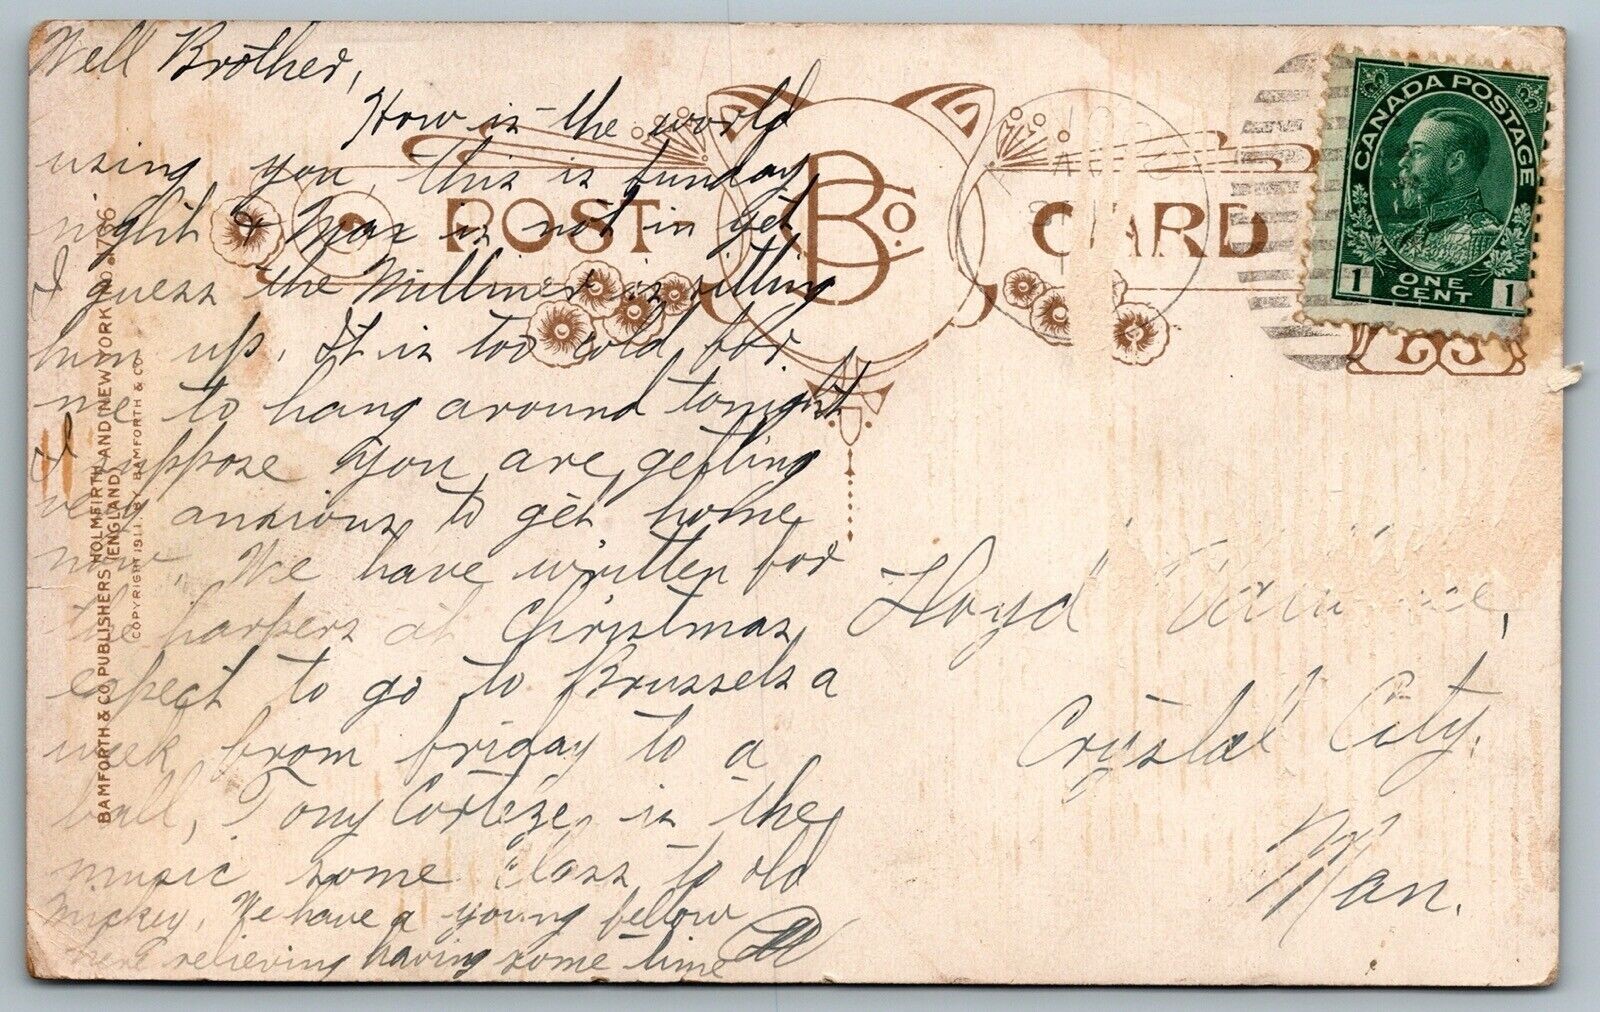 Well Brother,
How is the world
using you, this is sunday
night & Max is not in yet
I guess the Milliner is sitting
him up. It is too cold for
me to hang around tonight
I suppose you are getting
very anxious to get home
now, We have written for
the harpers at Christmas,
expect to go to Brussels a
week from friday to a
ball, Tony Corteze, is the
music some class to old
Mickey, We have a young fellow
here relieving having some time
POST CARD
B & Co.
CANADA POSTAGE
1 ONE CENT 1
Lloyd
Crystal City,
Man.
BAMFORTH & CO. PUBLISHERS HOLMFIRTH (ENGLAND) AND NEW YORK NO. 1766
COPYRIGHT 1911. BY BAMFORTH & CO.